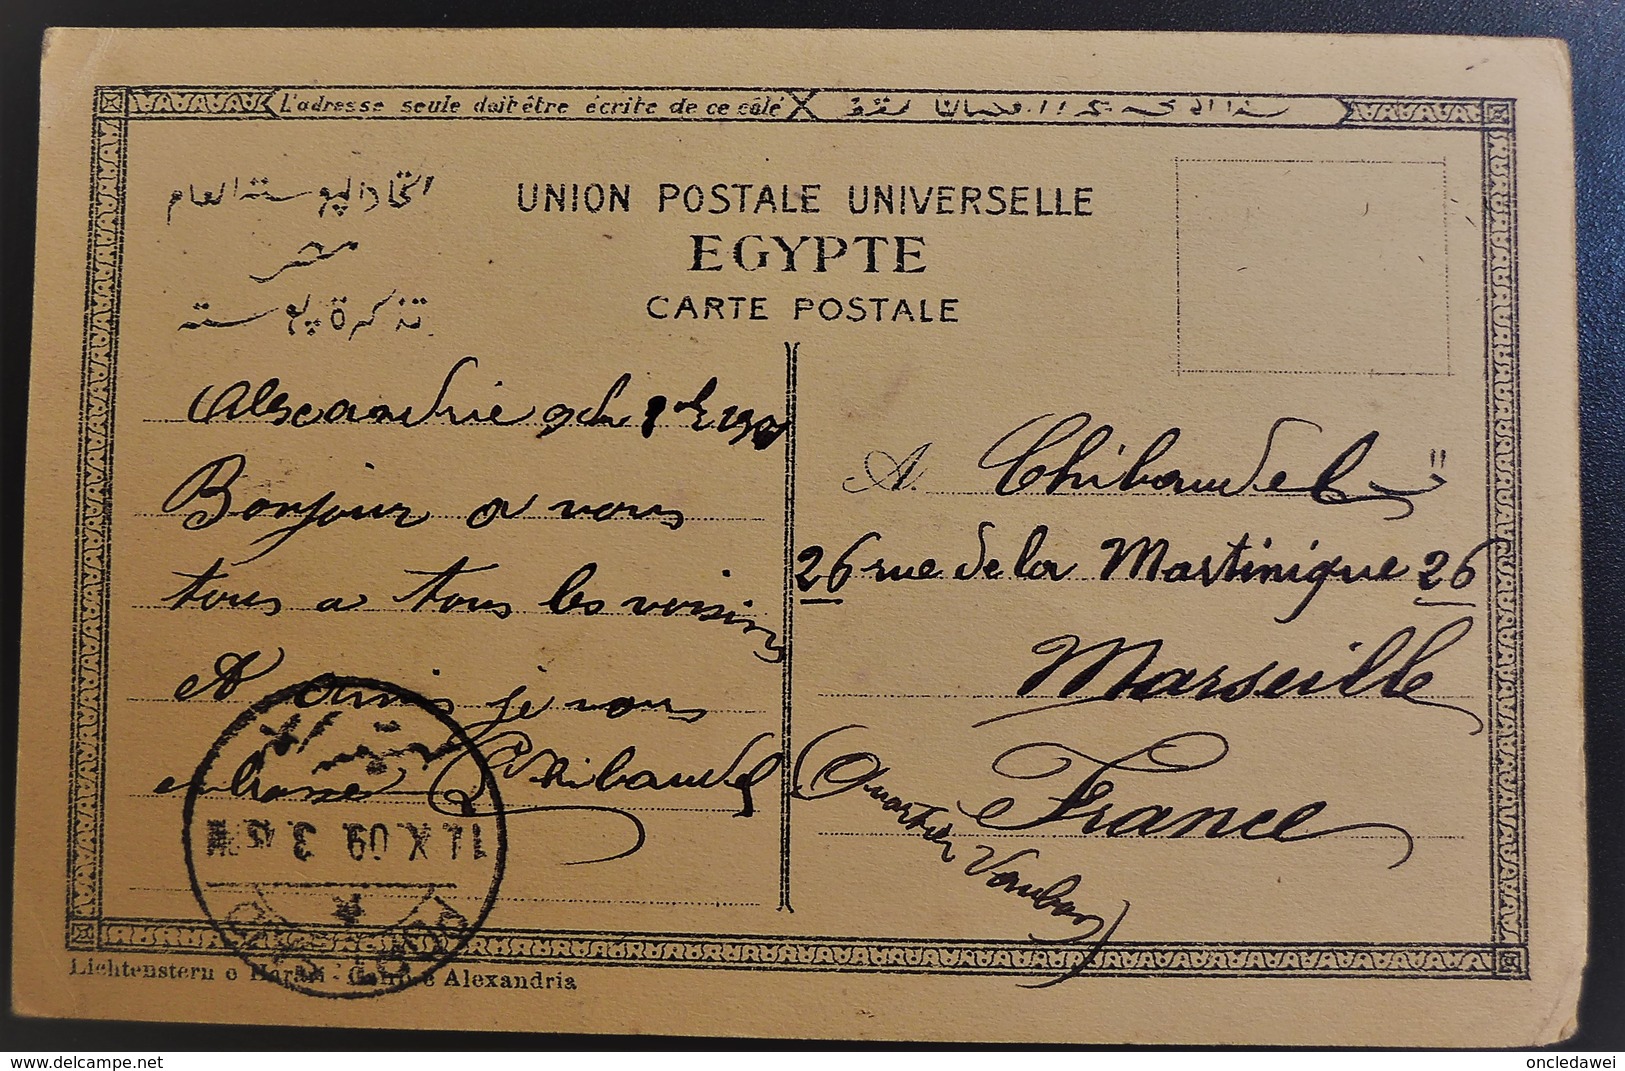 L'adresse seule doit être écrite de ce côté
اتحاد البوستة العام
مصر
تذكرة بوستة
UNION POSTALE UNIVERSELLE
EGYPTE
CARTE POSTALE
Alexandrie
Bonjour a vous
tous a tous les voisins
et amis je vous
embrasse Thibaudel
11.X.09 3
A. Thibaudel
26 rue de la Martinique 26
Marseille
France
(Quartier Vauban)
Lichtenstern & Harari - Cairo & Alexandria
www.delcampe.net
oncledawei